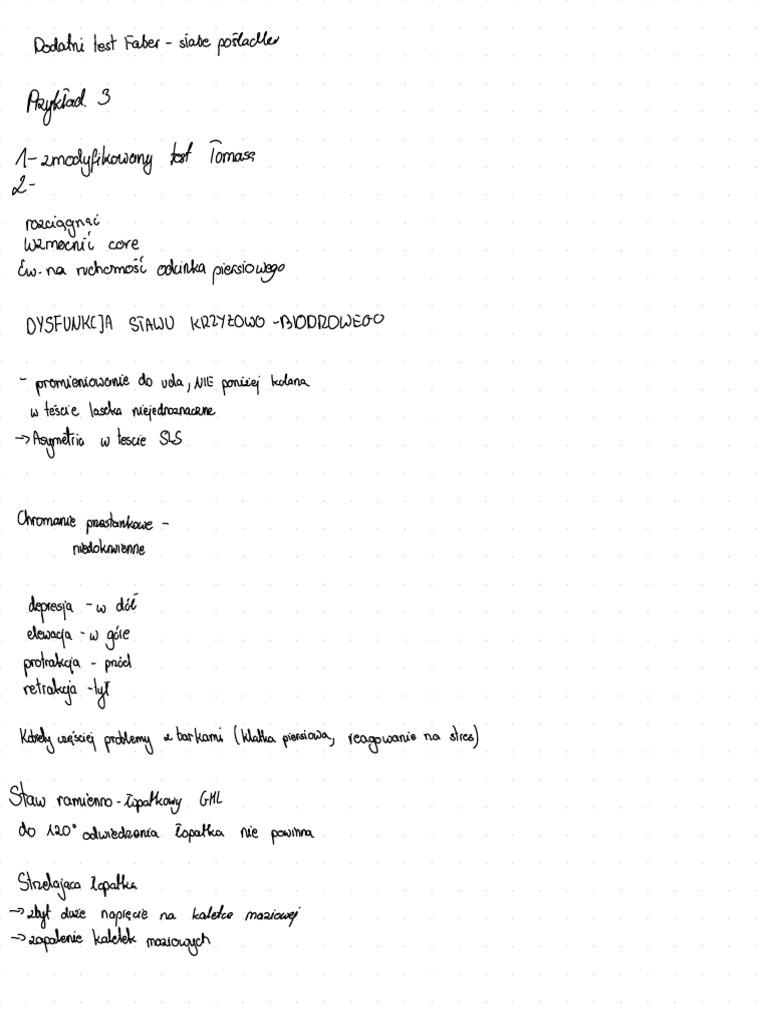 Dodatni test Faber - słabe pośladki
Przykład 3
1- zmodyfikowany test Tomasa
2-
rozciągnąć
wzmocnić core
Ćw. na ruchomość odcinka piersiowego
DYSFUNKCJA STAWU KRZYŻOWO -BIODROWEGO
- promieniowanie do uda, NIE poniżej kolana
w teście laseka niejednoznaczne
→ Asymetria w tescie SLS
Chromanie przestankowe -
niedokrwienne
depresja - w dół
elewacja - w góre
protrakcja - przód
retrakcja -tył
Kobiety częściej problemy z barkami (klatka piersiowa, reagowanie na stres)
Staw ramienno-łopatkowy GHL
do 120° odwiedzenia łopatka nie powinna
Strzelająca łopatka
→ zbyt duże napięcie na kaletce maziowej
→ zapalenie kaletek maziowych